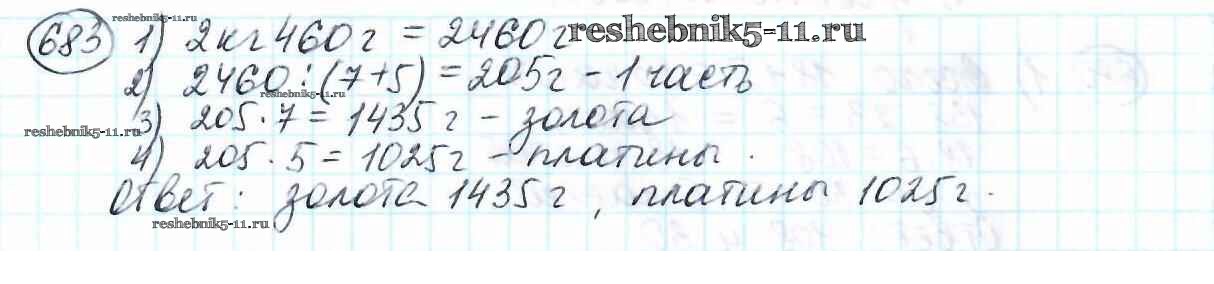 reshebnik5-11.ru
683 1) 2кг 460г = 2460г reshebnik5-11.ru
2) 2460 : (7+5) = 205г - 1 часть
reshebnik5-11.ru
3) 205 · 7 = 1435г - золота
reshebnik5-11.ru
4) 205 · 5 = 1025г - платины.
Ответ: золота 1435г, платины 1025г.
reshebnik5-11.ru